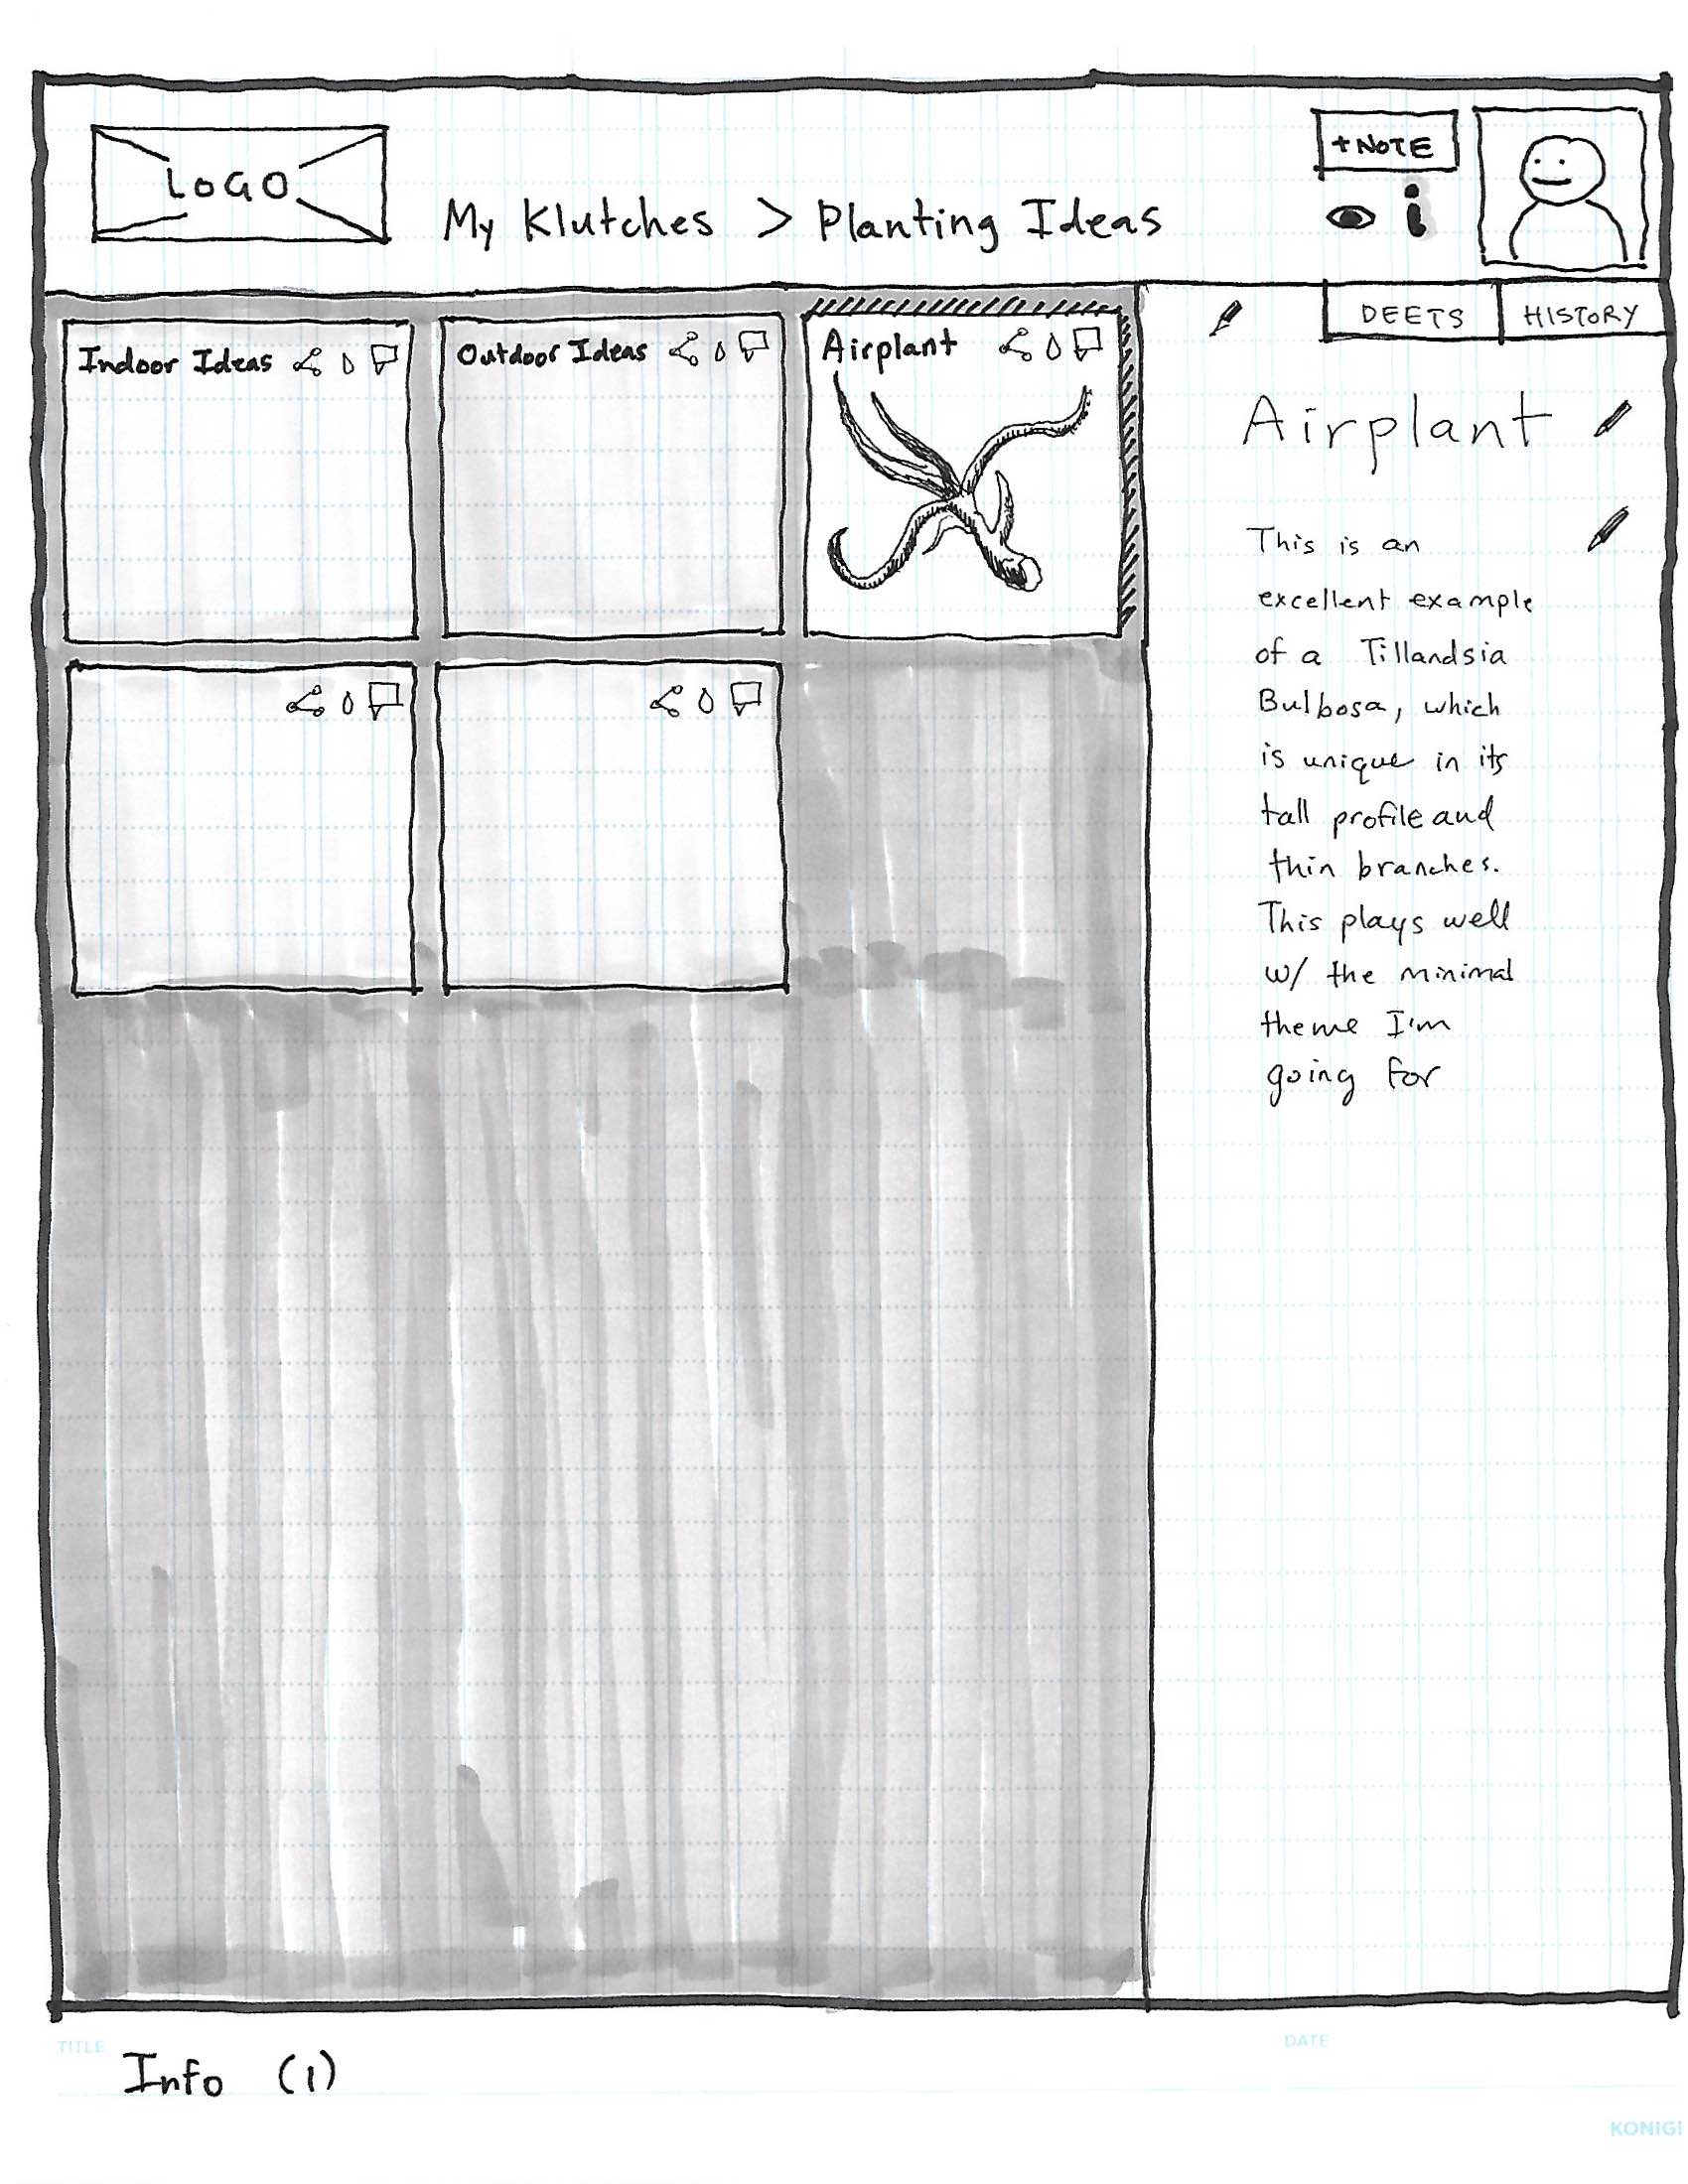 LOGO
My Klutches > Planting Ideas
+NOTE
i
DEETS
HISTORY
Indoor Ideas
Outdoor Ideas
Airplant
Airplant
This is an
excellent example
of a Tillandsia
Bulbosa, which
is unique in its
tall profile and
thin branches.
This plays well
w/ the minimal
theme I'm
going for
TITLE
Info (1)
DATE
KONIGI